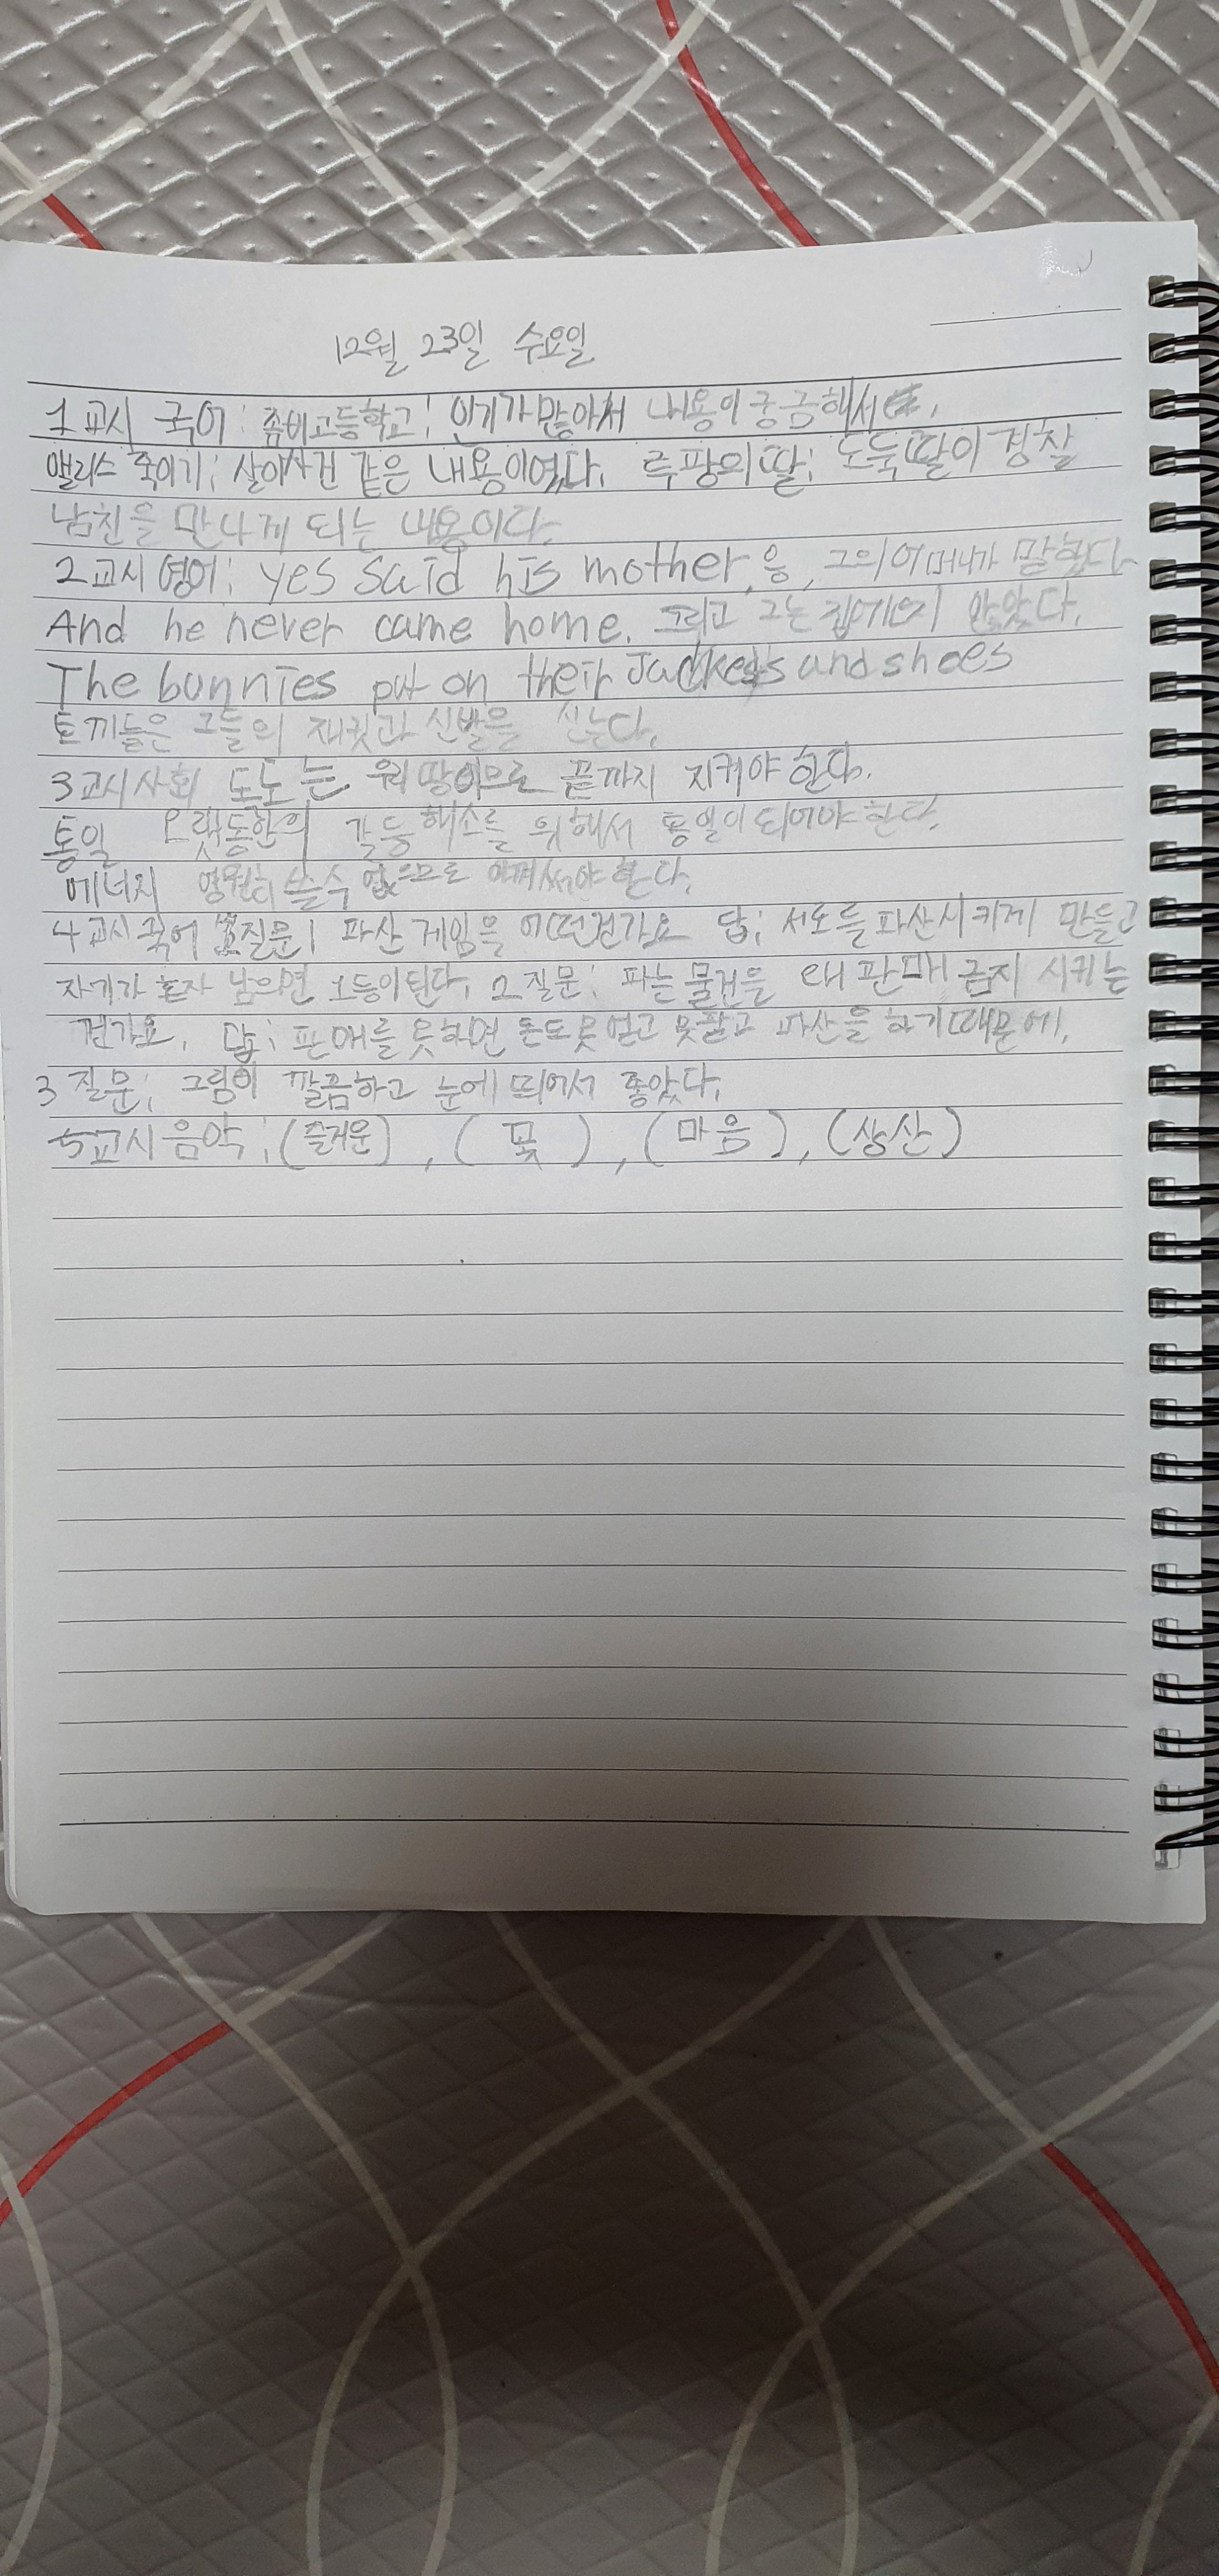 12월 23일 수요일
1교시 국어: 좀비고등학교: 인기가 많아서 내용이 궁금해서.
앨리스 죽이기: 살인사건 같은 내용이였다. 루팡의 딸: 도둑딸이 경찰
남친을 만나게 되는 내용이다.
2교시 영어: yes said his mother, 응, 그의 어머니가 말했다.
And he never came home. 그리고 그는 집에 오지 않았다.
The bunnies put on their Jackets and shoes
토끼들은 그들의 재킷과 신발을 신는다.
3교시 사회 도는 땅이므로 끝까지 지켜야 한다.
통일 오랫동안의 갈등 해소를 위해서 통일이 되어야 한다.
에너지 영원히 쓸 수 없으므로 아껴써야 한다.
4교시 국어 질문1 파산 게임은 어떤건가요 답: 서로를 파산시키게 만들고
자기가 혼자 남으면 1등이 된다. 2 질문: 파는 물건을 왜 판매 금지 시키는
건가요. 답: 판매를 못하면 돈도 못 얻고 못팔고 파산을 하기 때문에.
3 질문: 그림이 깔끔하고 눈에 띄어서 좋았다.
5교시 음악: (즐거운), (꽃), (마음), (상산)